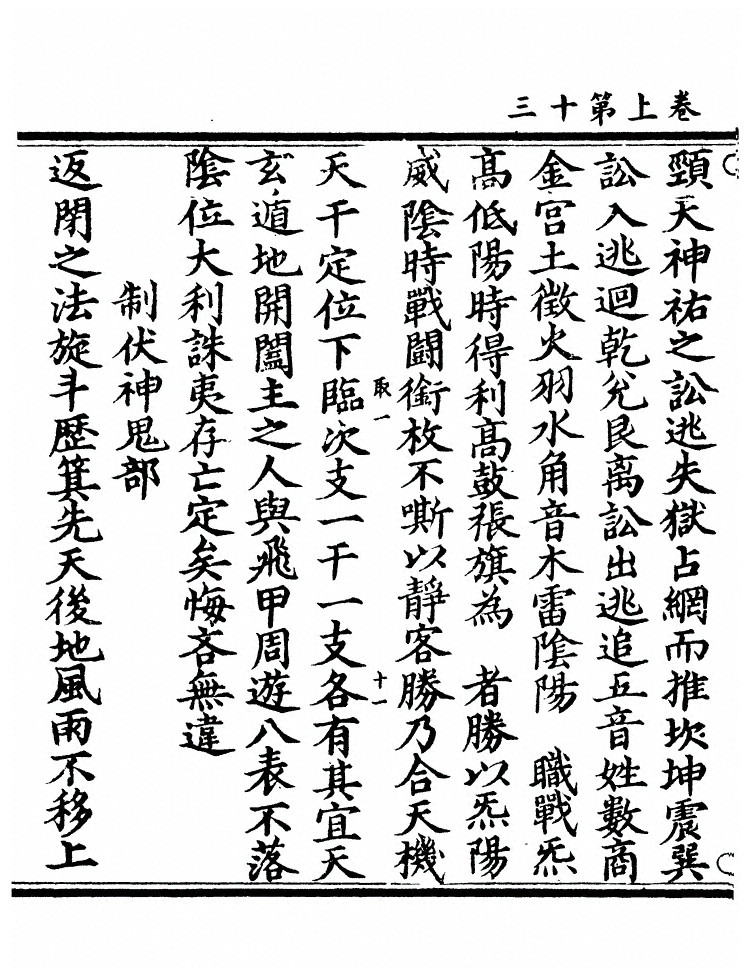 卷上第十三
頸天神祐之訟逃失獄占網而推坎坤震巽
訟入逃迴乾兊艮离訟出逃追五音姓數商
金宫土徴火羽水角音木雷陰陽　職戰炁
髙低陽時得利髙鼓張旗為　者勝以炁陽
威陰時戰鬪銜枚不嘶以靜客勝乃合天機
天干定位下臨次支一干一支各有其宜天
取一
十一
玄遁地開闔主之人與飛甲周遊八表不落
陰位大利誅夷存亡定矣悔吝無違
制伏神鬼部
返閉之法旋斗歴箕先天後地風雨不移上